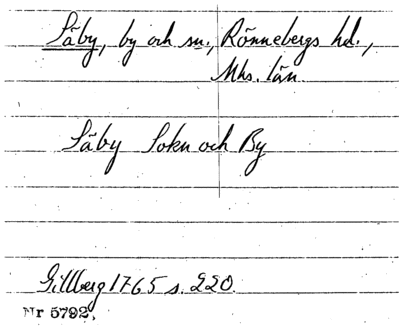 Säby, by och sn., Rönnebergs hd.,
Mhs. län
Säby Sokn och By
Gillberg 1765 s. 220.
Nr 5792.